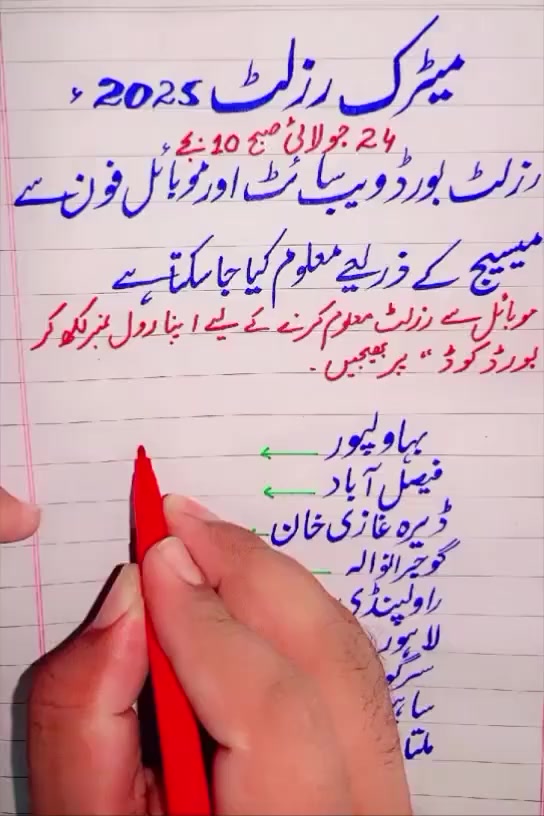 میٹرک رزلٹ 2025ء
24 جولائی صبح 10 بجے
رزلٹ بورڈ ویب سائٹ اور موبائل فون سے
میسیج کے ذریعے معلوم کیا جا سکتا ہے
موبائل سے رزلٹ معلوم کرنے کے لیے اپنا رول نمبر لکھ کر
بورڈ کوڈ " پر بھیجیں۔
بہاولپور ←
فیصل آباد ←
ڈیرہ غازی خان
گوجرانوالہ
راولپنڈی
لاہور
سرگو
ساہ
ملتا